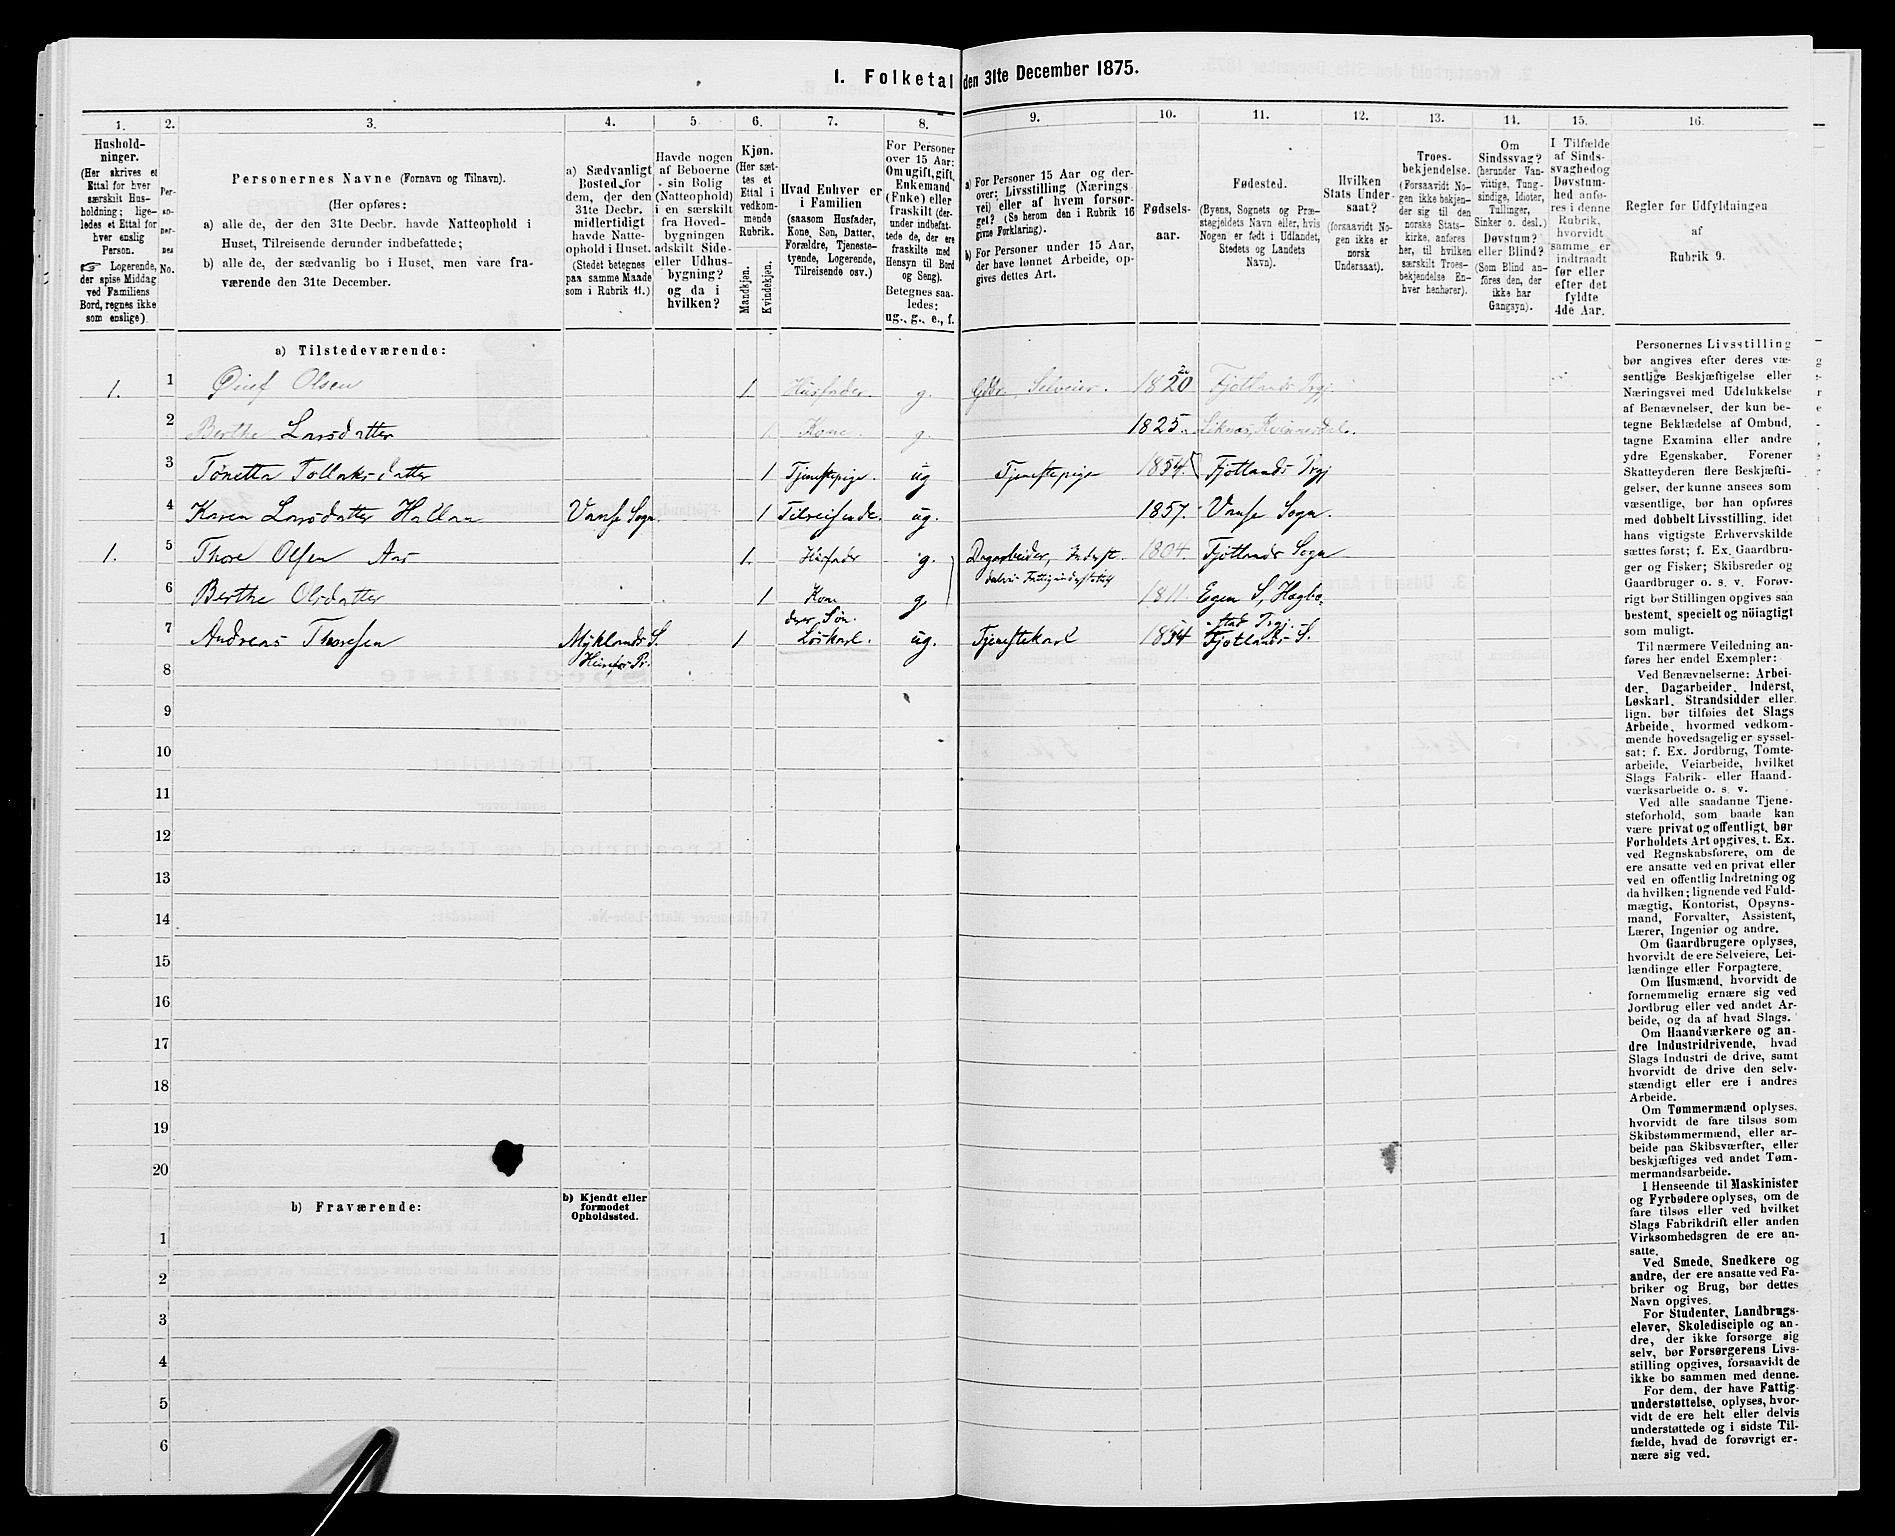 I. Folketal den 31te December 1875.
1. 2. 3. 4. 5. 6. 7. 8. 9. 10. 11. 12. 13. 14. 15. 16.
Hushold-
ninger.
(Her skrives et
Ettal for hver
særskilt Hus-
holdning; lige-
ledes et Ettal for
hver enslig
Person.
☞ Logerende,
der spise Middag
ved Familiens
Bord, regnes ikke
som enslige).
Per-
so-
ner-
nes
No.
Personernes Navne (Fornavn og Tilnavn).
(Her opføres:
a) alle de, der den 31te Decbr. havde Natteophold i
Huset, Tilreisende derunder indbefattede;
b) alle de, der sædvanlig bo i Huset, men vare fra-
værende den 31te December.
a) Sædvanligt
Bosted for
dem, der den
31te Decbr.
midlertidigt
havde Natte-
ophold i Huset.
(Stedet betegnes
paa samme Maade
som i Rubrik 11.)
Havde nogen
af Beboerne
sin Bolig
(Natteophold)
i en særskilt
fra Hoved-
bygningen
adskilt Side-
eller Udhus-
bygning?
og da i
hvilken?
Kjøn.
(Her sæt-
tes et
Ettal i
vedkom-
mende
Rubrik.
Mandkjøn.
Kvindekjøn.
Hvad Enhver er
i Familien
(saasom Husfader,
Kone, Søn, Datter,
Forældre, Tjeneste-
tyende, Logerende,
Tilreisende osv.)
For Personer
over 15 Aar:
Om ugift, gift,
Enkemand
(Enke) eller
fraskilt (der-
under indbefat-
tede de, der ere
fraskilte med
Hensyn til Bord
og Seng).
Betegnes saa-
ledes:
ug., g., e., f.
a) For Personer 15 Aar og der-
over: Livsstilling (Nærings
vei) eller af hvem forsør-
get? (Se herom den i Rubrik 16
givne Forklaring).
b) For Personer under 15 Aar,
der have lønnet Arbeide, op-
gives dettes Art.
Fødsels-
aar.
Fødested.
(Byens, Sognets og Præ-
stegjeldets Navn eller, hvis
Nogen er født i Udlandet,
Stedets og Landets
Navn).
Hvilken
Stats Under-
saat?
(forsaavidt No-
gen ikke er
norsk
Undersaat).
Troes-
bekjendelse.
(Forsaavidt No-
gen ikke bekjen-
der sig til den
norske Stats-
kirke, anføres
her, til hvilken
særskilt Troes-
bekjendelse En-
hver henhører).
Om
Sindssvag?
(herunder Van-
vittige, Tung-
sindige, Idioter,
Tullinger,
Sinker o. desl.)
Døvstum?
eller Blind?
(Som Blind an-
føres den, der
ikke har
Gangsyn).
I Tilfælde
af Sinds-
svaghed og
Døvstum-
hed anfø-
res i denne
Rubrik,
hvorvidt
samme er
indtraadt
før eller
efter det
fyldte
4de Aar.
Regler for Udfyldningen
af
Rubrik 9.
a) Tilstedeværende:
1. 1 Olsen 1. Husfader. g. Gdbr., Selveier. 1820 Fjotlands Prgj.
2 Berthe Larsdatter 1 Kone g. 1825. Liknæs, Kvinnesdal.
3 Tønetta Tollaksdatter 1 Tjenestepige. ug Tjenestepige 1854. Fjotlands Prgj
4 Karen Larsdatter Hallan Vanse Sogn. 1 Tilreisende. ug. 1857. Vanse Sogn.
1. 5 Thore Olsen Aas 1. Husfader g. Dagarbeider, Inderst. 1804. Fjotlands Sogn
delvis Fattigunderstøttet
6 Berthe Olsdatter 1 Kone g. 1811. Egen S, Hægbo-
stad Prgj.
7 Andreas Thoresen Myklands S. 1 deres Søn. Løskarl. ug. Tjenestekarl 1854 Fjotlands S.
8
9
10
11
12
13
14
15
16
17
18
19
20
b) Fraværende:
b) Kjendt eller
formodet
Opholdssted.
1
2
3
4
5
6
Personernes Livsstilling
bør angives efter deres væ-
sentlige Beskjæftigelse eller
Næringsvei med Udelukkelse
af Benævnelser, der kun be-
tegne Beklædelse af Ombud,
tagne Examina eller andre
ydre Egenskaber. Forener
Skatteyderen flere Beskjæfti-
gelser, der kunne ansees som
væsentlige, bør han opføres
med dobbelt Livsstilling, idet
hans vigtigste Erhvervskilde
sættes først; f. Ex. Gaardbru-
ger og Fisker; Skibsreder og
Gaardbruger o. s. v. Forøv-
rigt bør Stillingen opgives saa
bestemt, specielt og nöiagtigt
som muligt.
Til nærmere Veiledning an-
føres her endel Exempler:
Ved Benævnelserne: Arbei-
der, Dagarbeider, Inderst,
Løskarl, Strandsidder eller
lign. bør tilføies det Slags
Arbeide, hvormed vedkom-
mende hovedsagelig er syssel-
sat; f. Ex. Jordbrug, Tomte-
arbeide, Veiarbeide, hvilket
Slags Fabrik- eller Haand-
værksarbeide o. s. v.
Ved alle saadanne Tjene-
steforhold, som baade kan
være privat og offentligt, bør
Forholdets Art opgives, t. Ex.
ved Regnskabsførere, om de
ere ansatte ved en privat eller
ved en offentlig Indretning og
da hvilken; lignende ved Fuld-
mægtig, Kontorist, Opsyns-
mand, Forvalter, Assistent,
Lærer, Ingeniør og andre.
Om Gaardbrugere oplyses,
hvorvidt de ere Selveiere, Lei-
lændinge eller Forpagtere.
Om Husmænd, hvorvidt de
fornemmelig ernære sig ved
Jordbrug eller ved andet Ar-
beide, og da af hvad Slags.
Om Haandværkere og an-
dre Industridrivende, hvad
Slags Industri de drive, samt
hvorvidt de drive den selv-
stændigt eller ere i andres
Arbeide.
Om Tømmermænd oplyses,
hvorvidt de fare tilsøs som
Skibstømmermænd, eller ar-
beide paa Skibsværfter, eller
beskjæftiges ved andet Tøm-
mermandsarbeide.
I Henseende til Maskinister
og Fyrbødere oplyses, om de
fare tilsøs eller ved hvilket
Slags Fabrikdrift eller anden
Virksomhedsgren de ere an-
satte.
Ved Smede, Snedkere og
andre, der ere ansatte ved Fa-
briker og Brug, bør dettes
Navn opgives.
For Studenter, Landbrugs-
elever, Skoledisciple og an-
dre, der ikke forsørge sig
selv, bør Forsørgerens Livs-
stilling opgives, forsaavidt de
ikke bo sammen med denne.
For dem, der have Fattig-
understøttelse, oplyses, hvor-
vidt de ere helt eller delvis
understøttede og i sidste Til-
fælde, hvad de forøvrigt er-
nære sig ved.